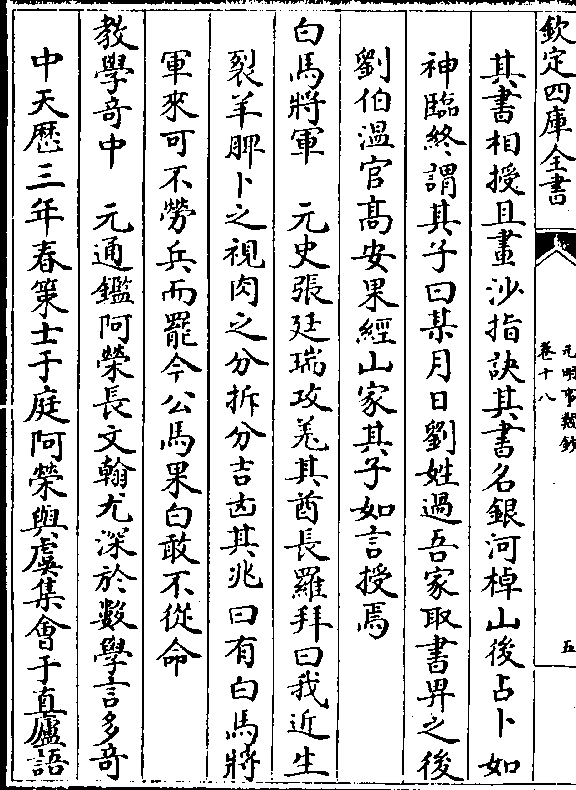 欽定四庫全書
元明事類鈔
卷十八
五
其書相授且畫沙指訣其書名銀河棹山後占卜如
神臨終謂其子曰某月日劉姓過吾家取書畀之後
劉伯温官髙安果經山家其子如言授焉
白馬將軍　元史張廷瑞攻羌其酋長羅拜曰我近生
裂羊脾卜之視肉之分拆分吉凶其兆曰有白馬將
軍來可不勞兵而罷今公馬果白敢不從命
教學竒中　元通鑑阿榮長文翰尤深於數學言多竒
中天厯三年春策士于庭阿榮與虞集會于直廬語